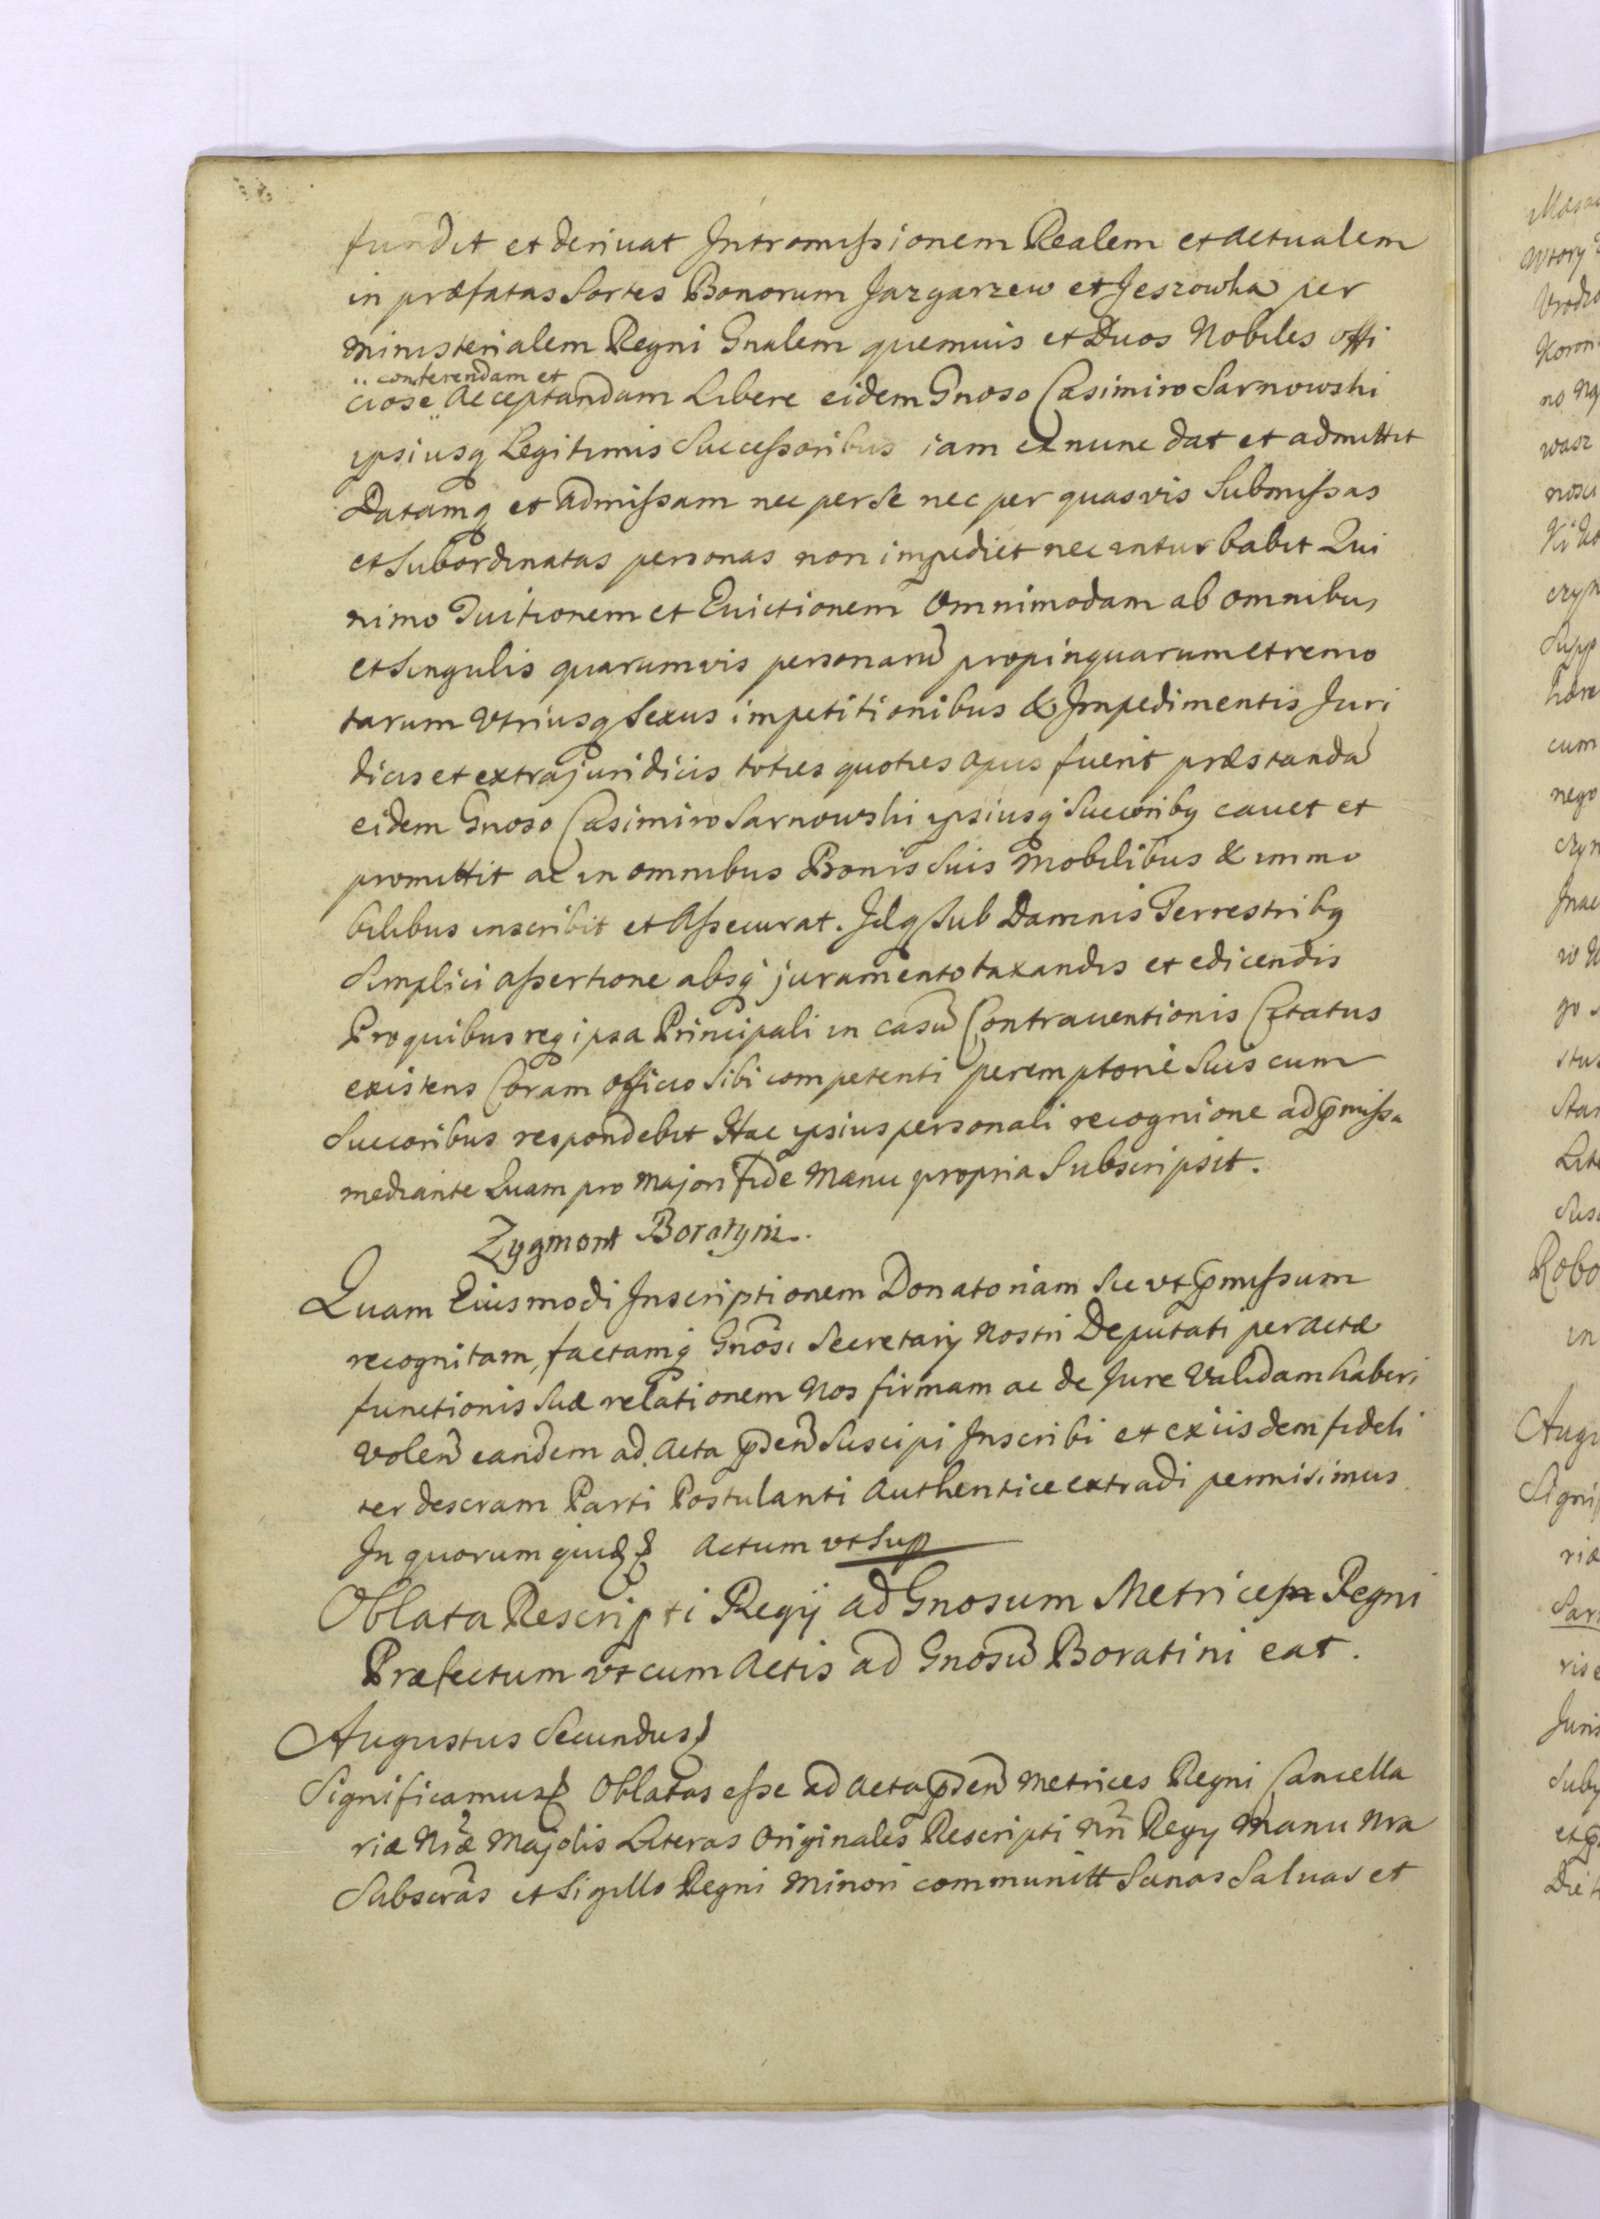 fundit et deriuat Intromissionem Realem et actualem
in præfatas Sortes Bonorum Jazgarzew et Jeszowka per
ministerialem Regni Gnalem quemuis et Duos Nobiles offi
conferendam et
ciose Acceptandam Libere eidem Gnoso Casimiro Sarnowski
ipsiusq Legitimis Successoribus iam ex nunc dat et admittit
Datamq et admissam nec per se nec per quasvis Submissas
et Subordinatas personas non impediet nec inturbabit Qui
nimo Tuitionem et Euictionem Omnimodam ab omnibus
et Singulis quarumvis personarũ propinquarum et remo
tarum Vtriusq Sexus impetitionibus & Impedimentis Juri
dicis et extrajuridicis toties quoties opus fuerit præstandã
eidem Gnoso Casimiro Sarnowski ipsiusq Succoribq cauet et
promittit ac in omnibus Bonis Suis Mobilibus & immo
bilibus inscribit et Assecurat. Idq Sub Damnis Terrestribq
Simplici assertione absq juramento taxandis et edicendis
Pro quibus req ipsa Principali in casũ Contrauentionis Citatus
existens Coram officio Sibi competenti peremptorie Suis cum
Succoribus respondebit Hac ipsius personali recognione ad p̃missa
mediante Quam pro majori fide Manu propria Subscripsit.
Zygmont Boratyni.
Quam Eiusmodi Inscriptionem Donatoriam Sic vt p̃missum
recognitam, factamq Gnõsi Secretarij Nostri Deputati peractæ
functionis Suæ relationem Nos firmam ac de Jure Validam haberi
Volen̄ eandem ad Acta p̃den̄ Suscipi Inscribi et ex iisdem fideli
ter descram Parti Postulanti Authentice extradi permisimus
In quorum Actum vt Sup
Oblata Rescripti Regij ad Gnosum Metrices Regni
Præfectum vt cum Actis ad Gnosũ Boratini eat.
Augustus Secundus
Significamus Oblatas esse ad Acta p̃den̄ Metrices Regni Cancella
riæ Nræ Majoris Literas Originales Rescripti Nri Regij Manu Nra
Subscrãs et Sigillo Regni Minori communitt Sanas Saluas et